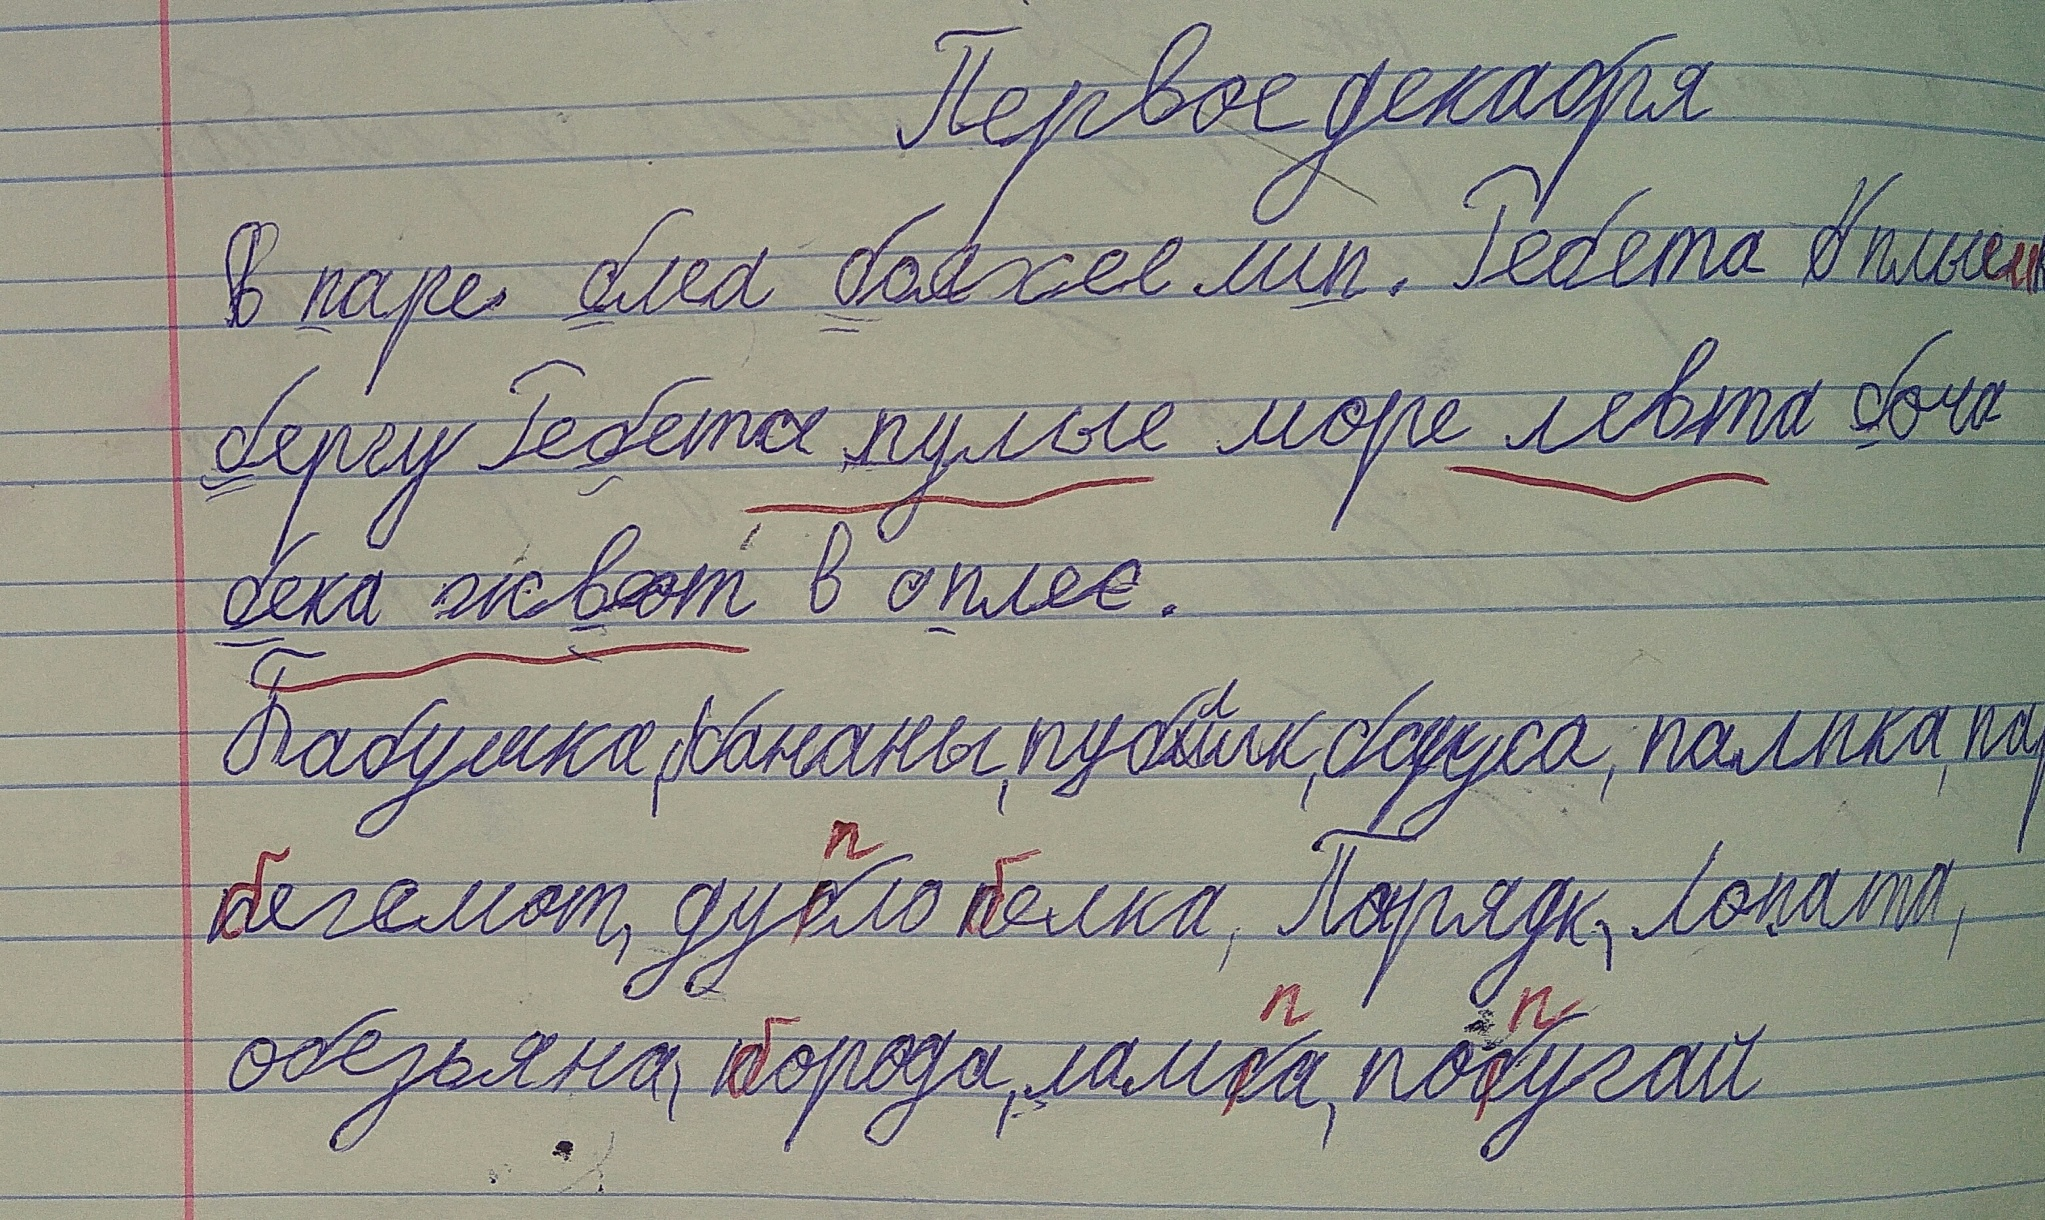 Первое декабря
В паре была бояхее мип. Гебета
бергу Гебета пулые море левта боча
бека жвот в оплее.
Бабушка, бананы, палпка,
бегемот, дупло белка, Порядк, лопата,
обезьяна, борода, лампа, попугай